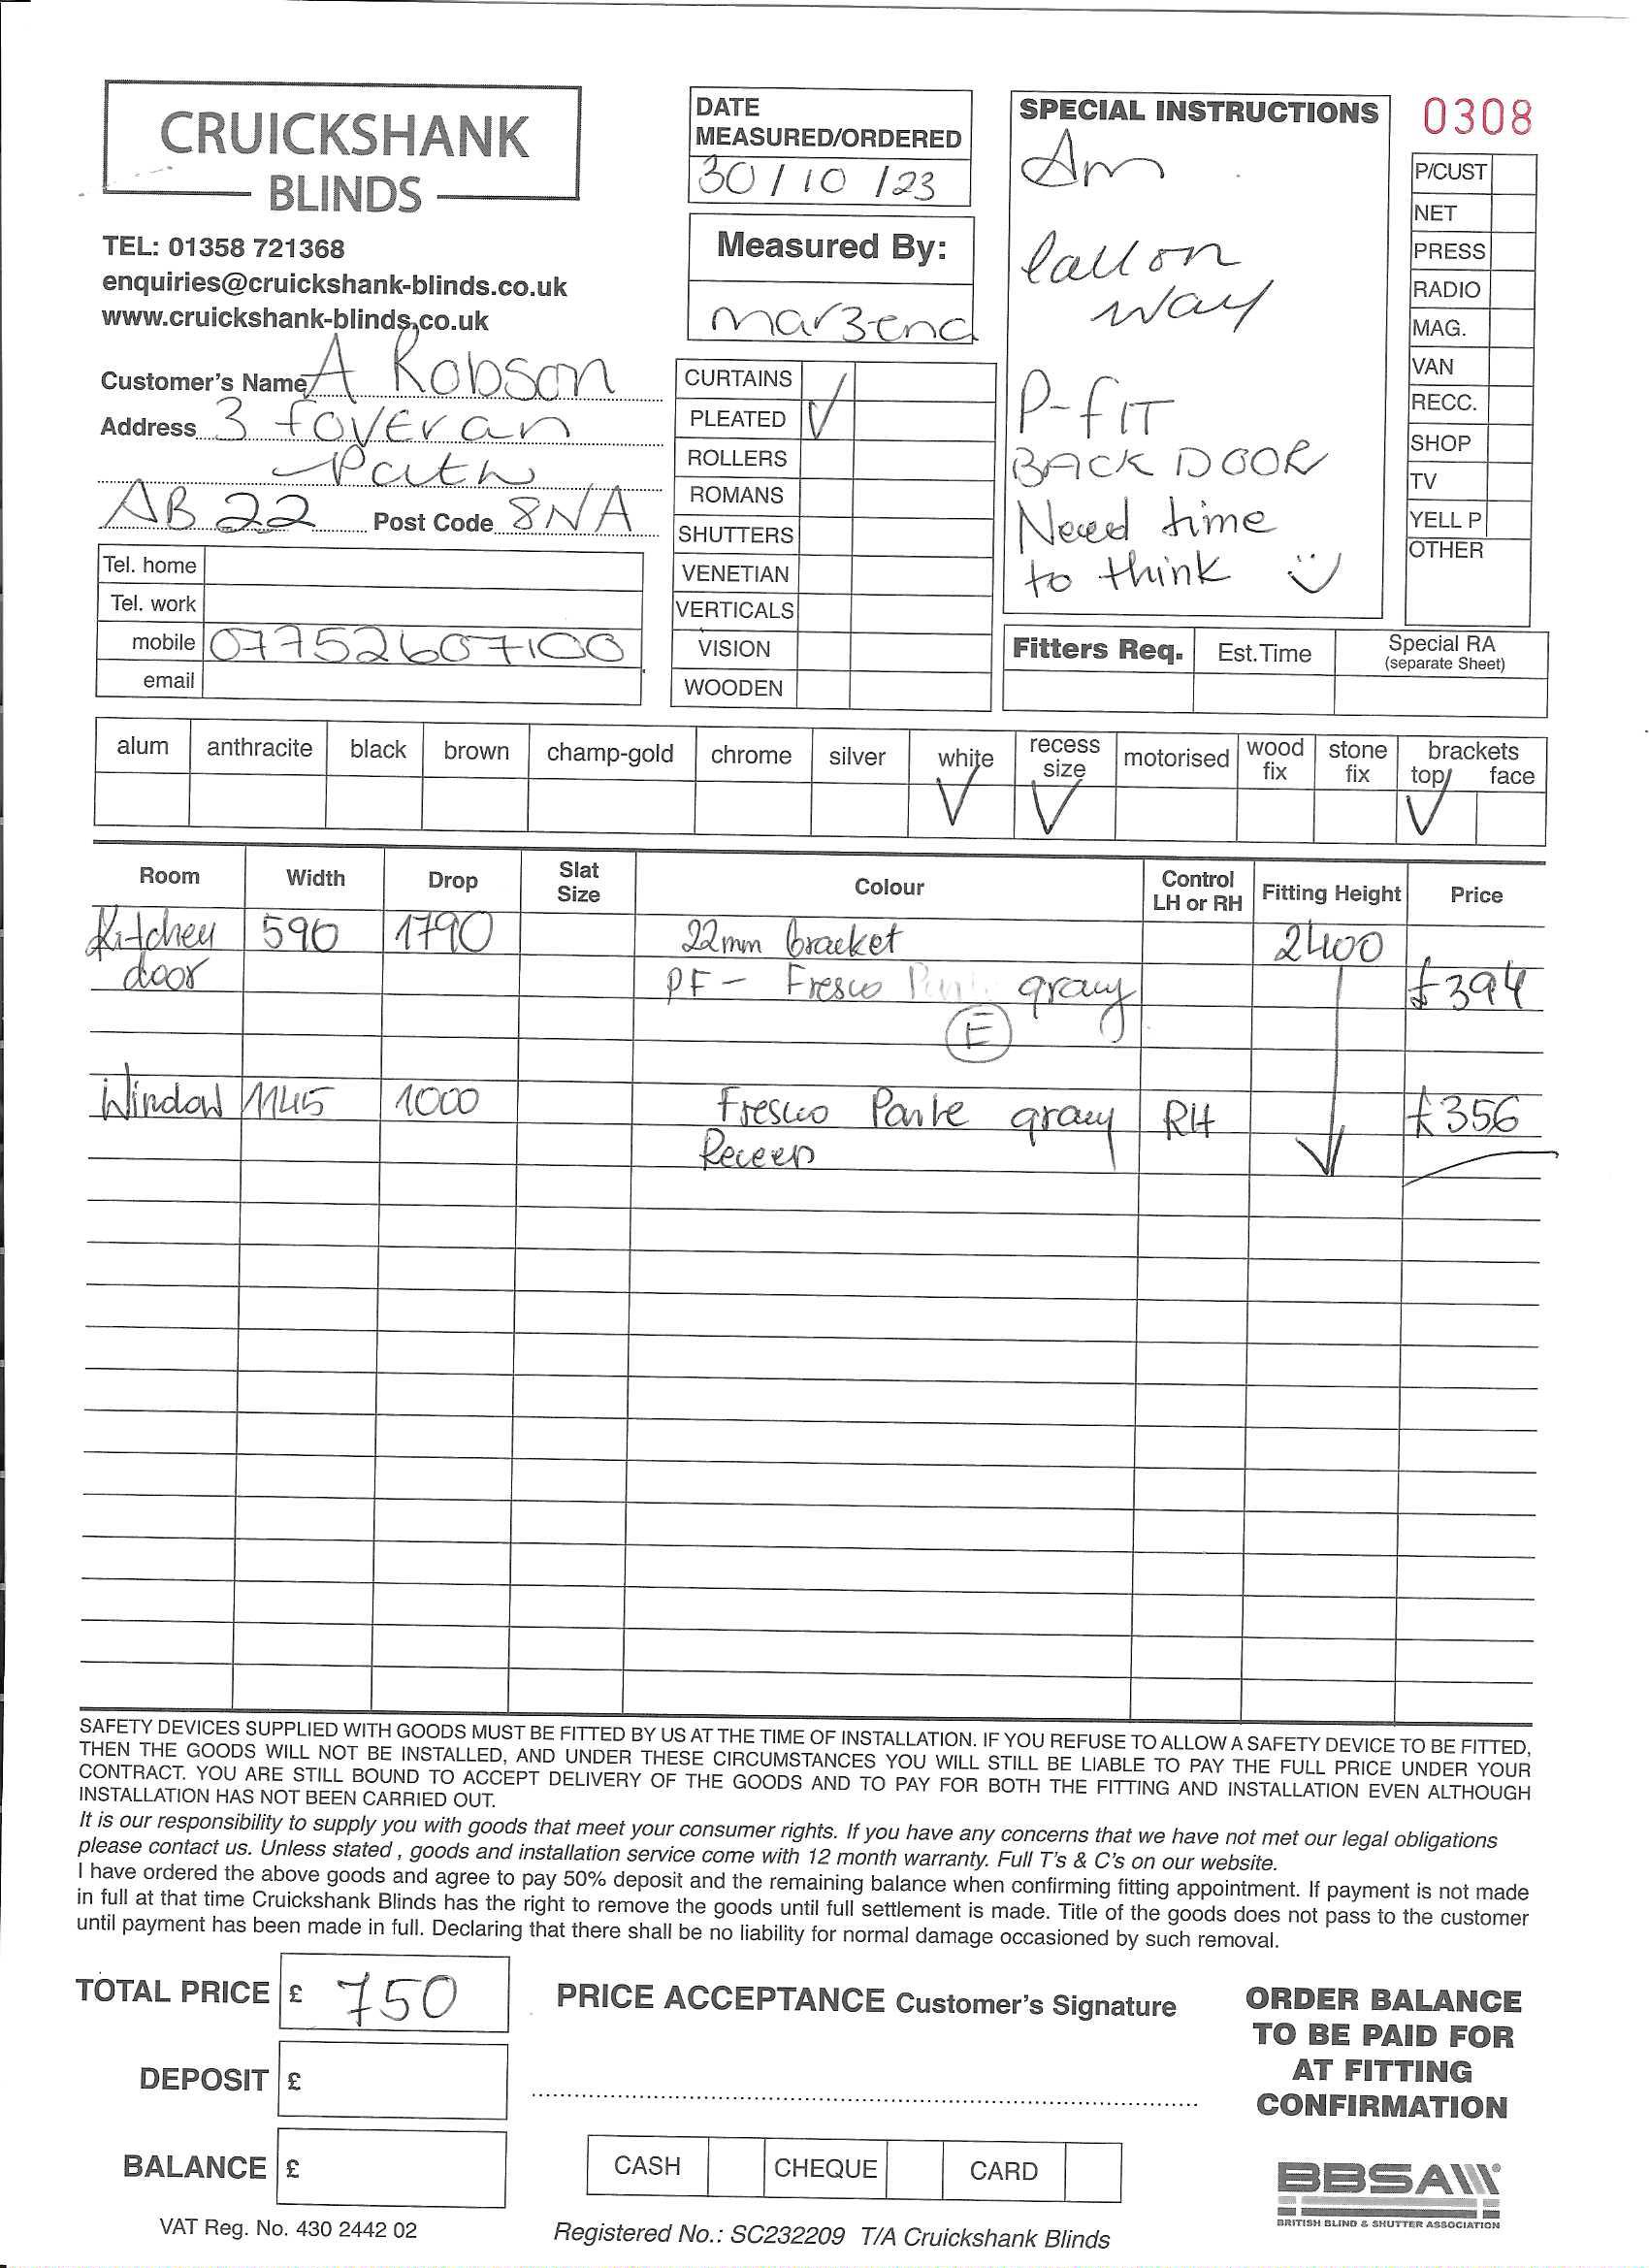 CRUICKSHANK
BLINDS
TEL: 01358 721368
enquiries@cruickshank-blinds.co.uk
www.cruickshank-blinds.co.uk
Customer's Name A Robson
Address 3 Foveran
Path
AB 22 Post Code 8NA
Tel. home
Tel. work
mobile 07752607100
email
DATE
MEASURED/ORDERED
30/10/23
Measured By:
marzena
CURTAINS
PLEATED ✓
ROLLERS
ROMANS
SHUTTERS
VENETIAN
VERTICALS
VISION
WOODEN
SPECIAL INSTRUCTIONS
Am
Call on
way
P-FIT
BACK DOOR
Need time
to think
0308
P/CUST
NET
PRESS
RADIO
MAG.
VAN
RECC.
SHOP
TV
YELL P
OTHER
Fitters Req. Est.Time Special RA
(separate Sheet)
alum anthracite black brown champ-gold chrome silver white recess size motorised wood fix stone fix brackets top face
✓ ✓ ✓
Room Width Drop Slat Size Colour Control LH or RH Fitting Height Price
Kitchen 590 1790 22mm bracket 2400
door PF - Fresco gray £394
E
Window 1145 1000 Fresco gray RH £356
SAFETY DEVICES SUPPLIED WITH GOODS MUST BE FITTED BY US AT THE TIME OF INSTALLATION. IF YOU REFUSE TO ALLOW A SAFETY DEVICE TO BE FITTED,
THEN THE GOODS WILL NOT BE INSTALLED, AND UNDER THESE CIRCUMSTANCES YOU WILL STILL BE LIABLE TO PAY THE FULL PRICE UNDER YOUR
CONTRACT. YOU ARE STILL BOUND TO ACCEPT DELIVERY OF THE GOODS AND TO PAY FOR BOTH THE FITTING AND INSTALLATION EVEN ALTHOUGH
INSTALLATION HAS NOT BEEN CARRIED OUT.
It is our responsibility to supply you with goods that meet your consumer rights. If you have any concerns that we have not met our legal obligations
please contact us. Unless stated , goods and installation service come with 12 month warranty. Full T's & C's on our website.
I have ordered the above goods and agree to pay 50% deposit and the remaining balance when confirming fitting appointment. If payment is not made
in full at that time Cruickshank Blinds has the right to remove the goods until full settlement is made. Title of the goods does not pass to the customer
until payment has been made in full. Declaring that there shall be no liability for normal damage occasioned by such removal.
TOTAL PRICE £ 750
DEPOSIT £
BALANCE £
VAT Reg. No. 430 2442 02
PRICE ACCEPTANCE Customer's Signature
CASH CHEQUE CARD
Registered No.: SC232209 T/A Cruickshank Blinds
ORDER BALANCE
TO BE PAID FOR
AT FITTING
CONFIRMATION
BBSA
BRITISH BLIND & SHUTTER ASSOCIATION